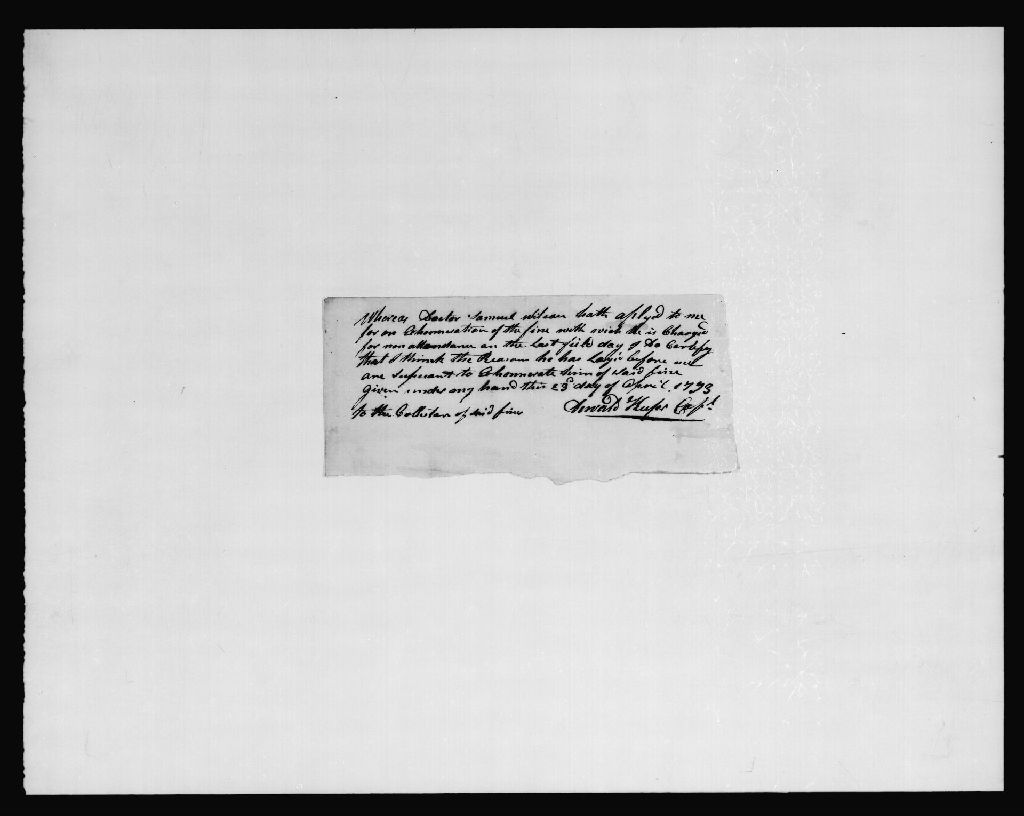 Whereas Doctor Samuel wilson hath applyd to me
for an Exhonneration of the fine with wich he is Chargd
for non attendance on the last field day I do Certefy
that I think the Reasons he has Layd before me
are sufficiant to Exhonnerate him of said fine
given under my hand this 23d day of April 1793
to the Collector of said fines Capt